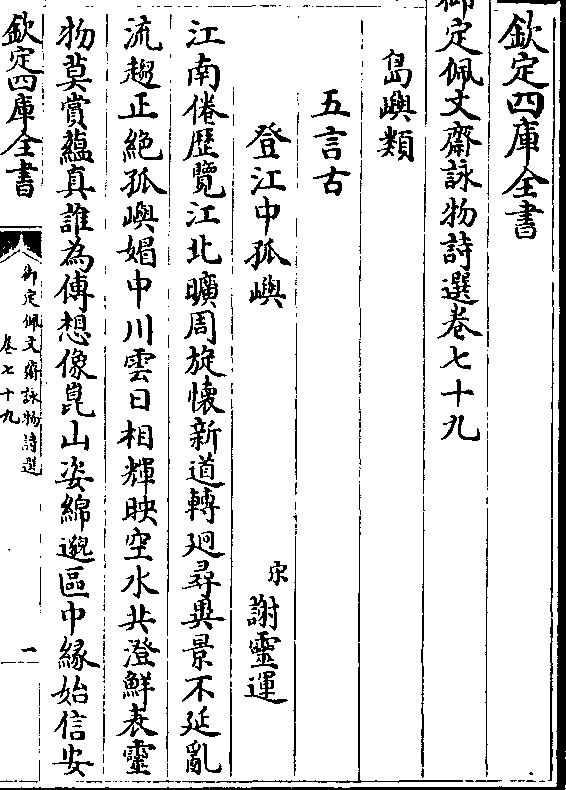 欽定四庫全書
御定佩文齋詠物詩選卷七十九
島嶼類
五言古
登江中孤嶼
宋謝靈運
江南倦歴覽江北曠周旋懐新道轉迥尋異景不延亂
流趨正絶孤嶼媚中川雲日相輝映空水共澄鮮表靈
物莫賞藴真誰為傳想像崑山姿緜邈區中縁始信安
欽定四庫全書
御定佩文齋詠物詩選
卷七十九
一